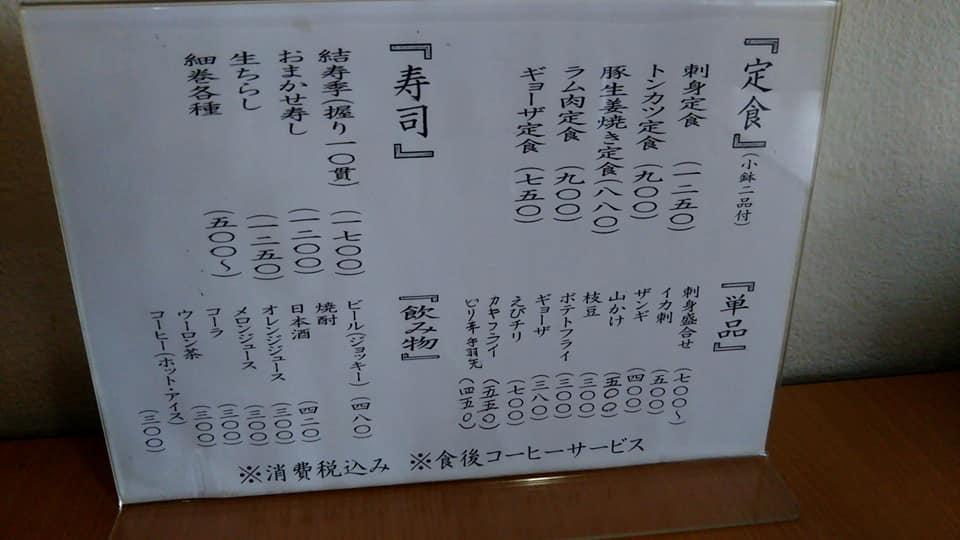 『定食』(小鉢二品付)
刺身定食 (一二五〇)
トンカツ定食 (九〇〇)
豚生姜焼き定食(八八〇)
ラム肉定食 (九〇〇)
ギョーザ定食 (七五〇)
『寿司』
結寿季(握り一〇貫) (一七〇〇)
おまかせ寿し (一二〇〇)
生ちらし (一二五〇)
細巻各種 (五〇〇〜)
『単品』
刺身盛合せ (七〇〇〜)
イカ刺 (五〇〇)
ザンギ (四〇〇)
山かけ (五〇〇)
枝豆 (三〇〇)
ポテトフライ (三〇〇)
ギョーザ (三八〇)
えびチリ (七〇〇)
カキフライ (五五〇)
(四五〇)
『飲み物』
ビール(ジョッキー) (四八〇)
焼酎
日本酒 (四二〇)
オレンジジュース (三〇〇)
メロンジュース (三〇〇)
コーラ (三〇〇)
ウーロン茶 (三〇〇)
コーヒー(ホット・アイス) (三〇〇)
※消費税込み ※食後コーヒーサービス